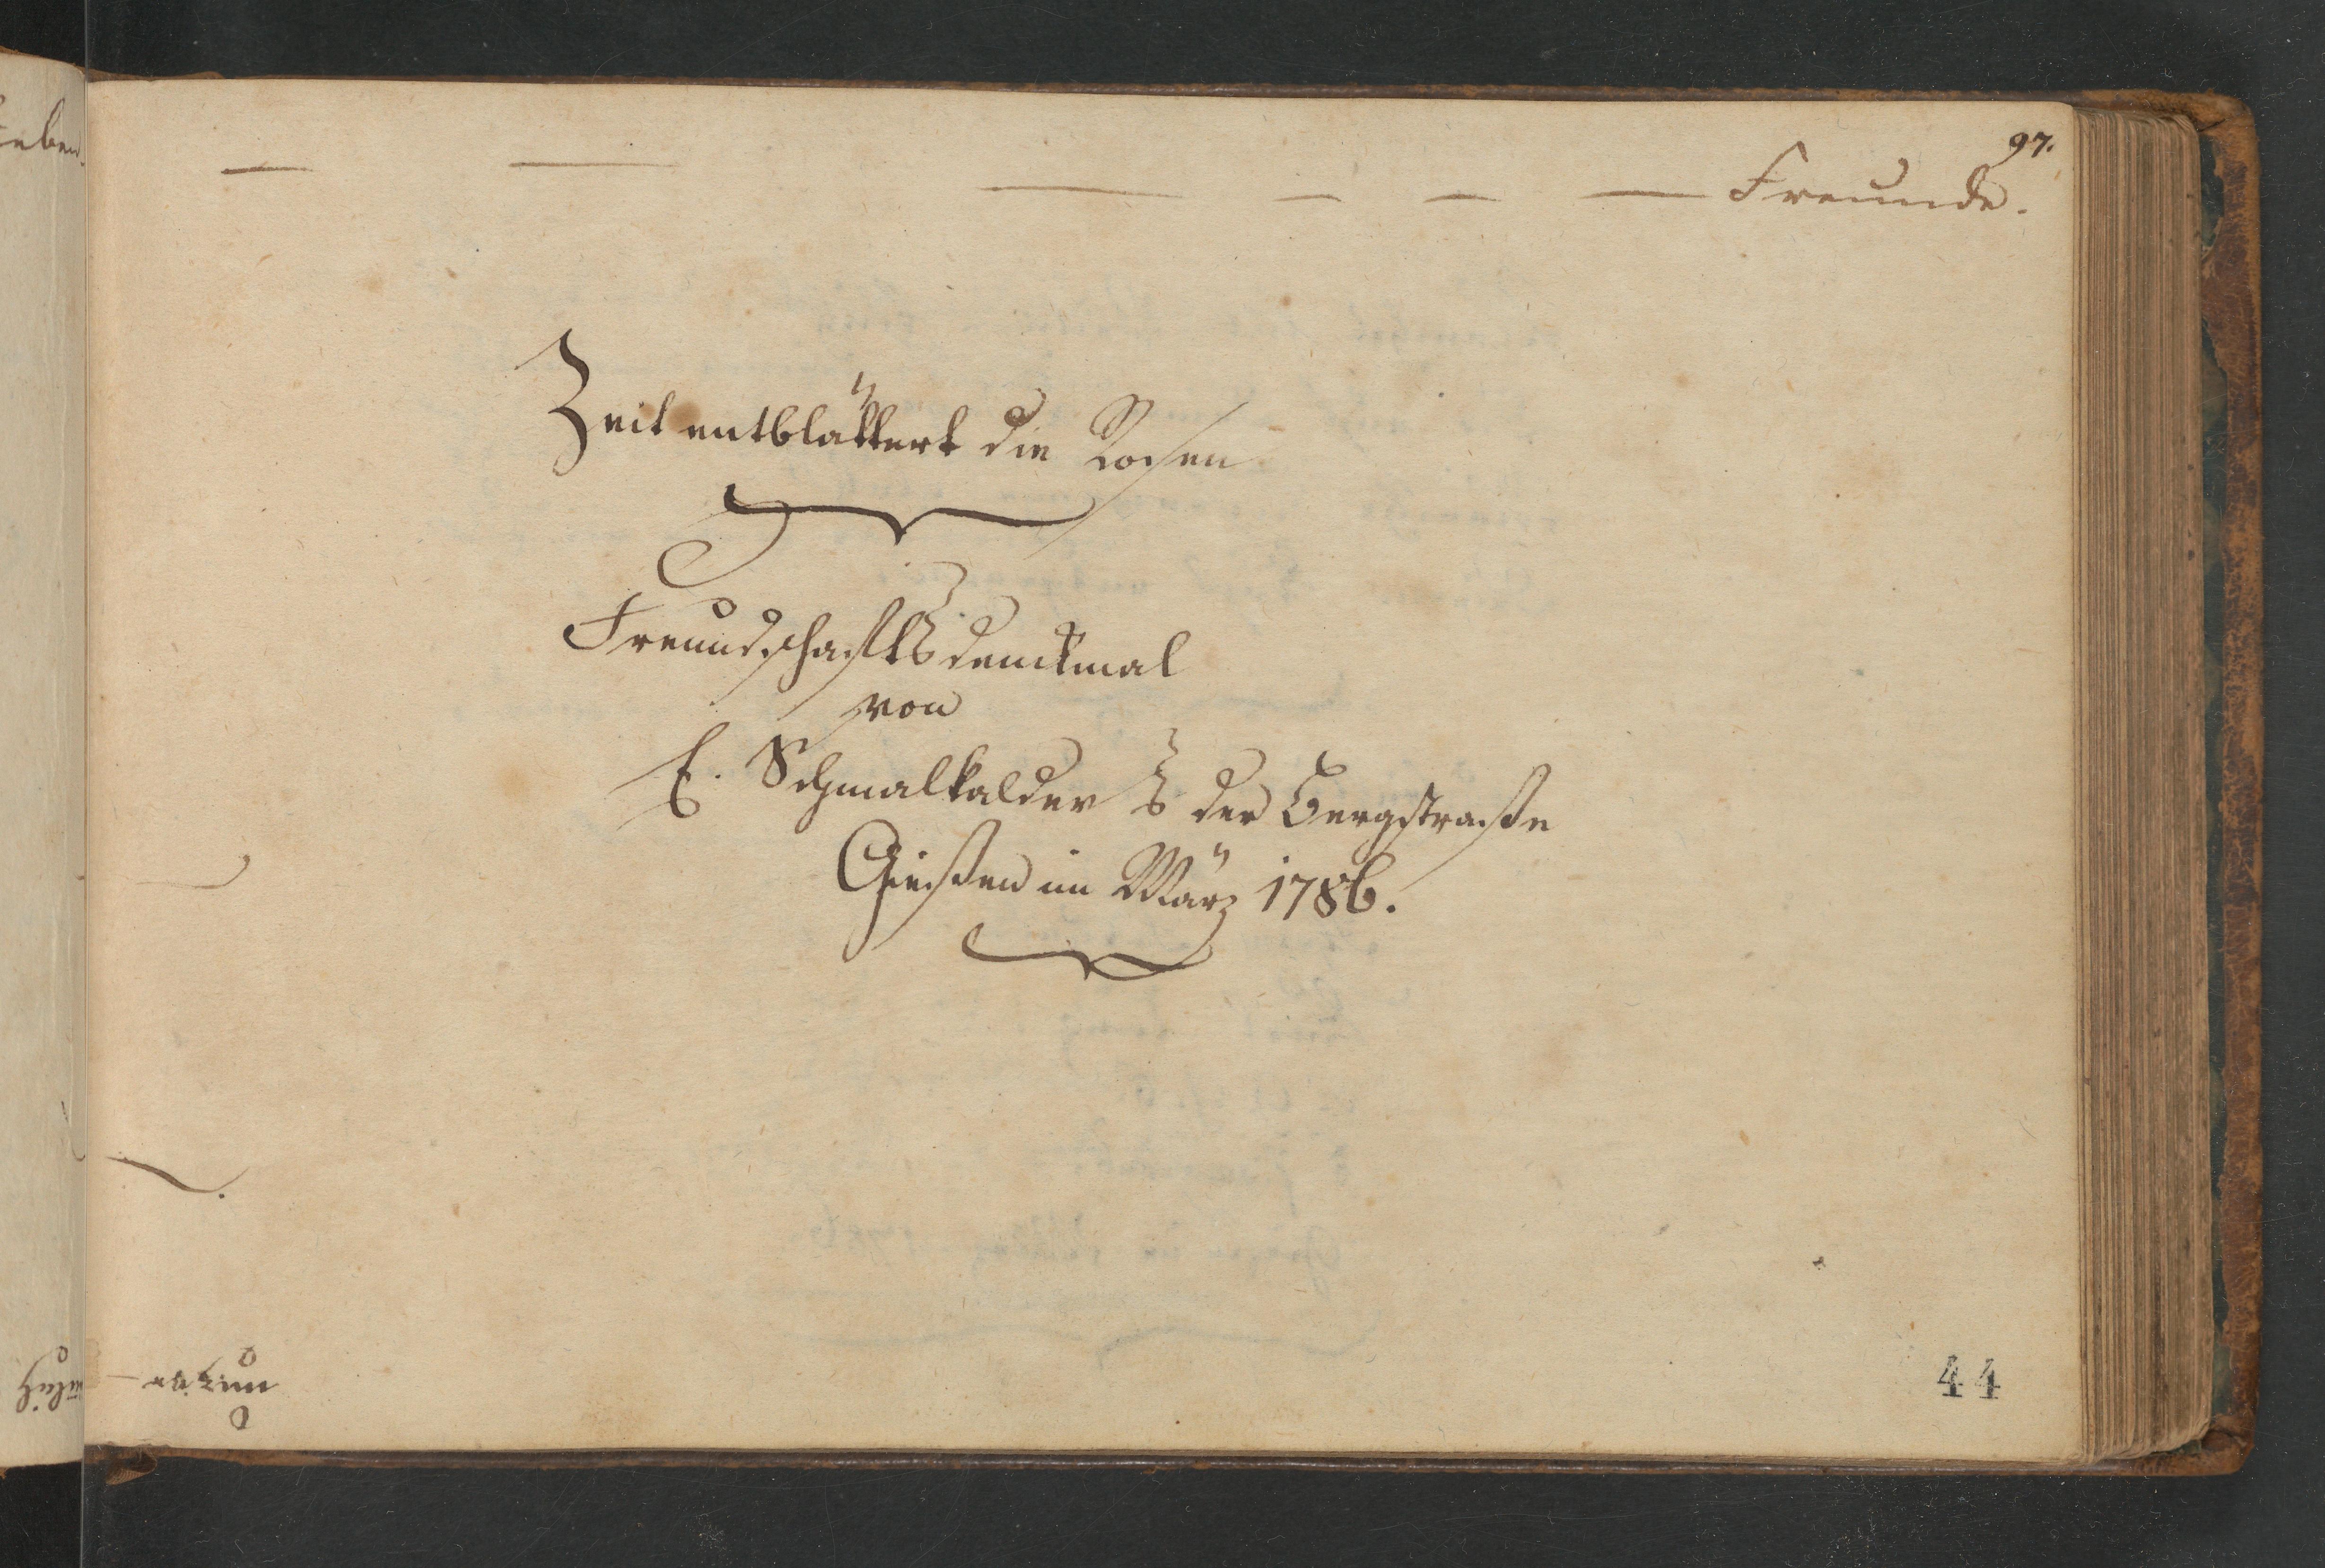 97.
— — — — — — Freunde.
Zeit entblättert die Rosen
Freundschaftsdenckmal
von
E. Schmalkalder der Bergstraße
Giessen im März 1786.
44